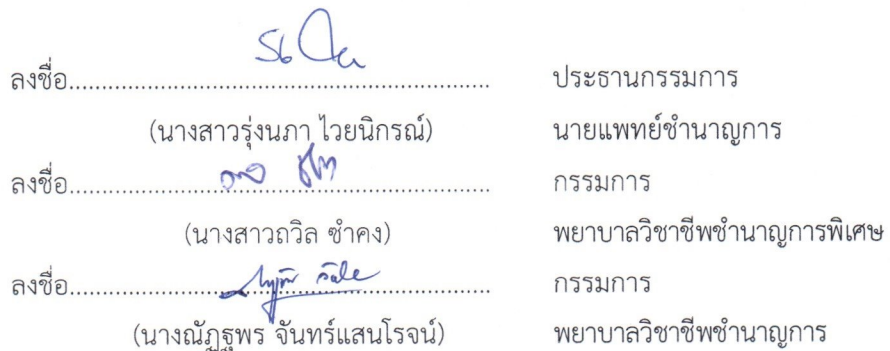 ลงชื่อ.................................................................. ประธานกรรมการ
(นางสาวรุ่งนภา ไวยนิกรณ์) นายแพทย์ชำนาญการ
ลงชื่อ.................................................................. กรรมการ
(นางสาวถวิล ซำคง) พยาบาลวิชาชีพชำนาญการพิเศษ
ลงชื่อ.................................................................. กรรมการ
(นางณัฏฐพร จันทร์แสนโรจน์) พยาบาลวิชาชีพชำนาญการ